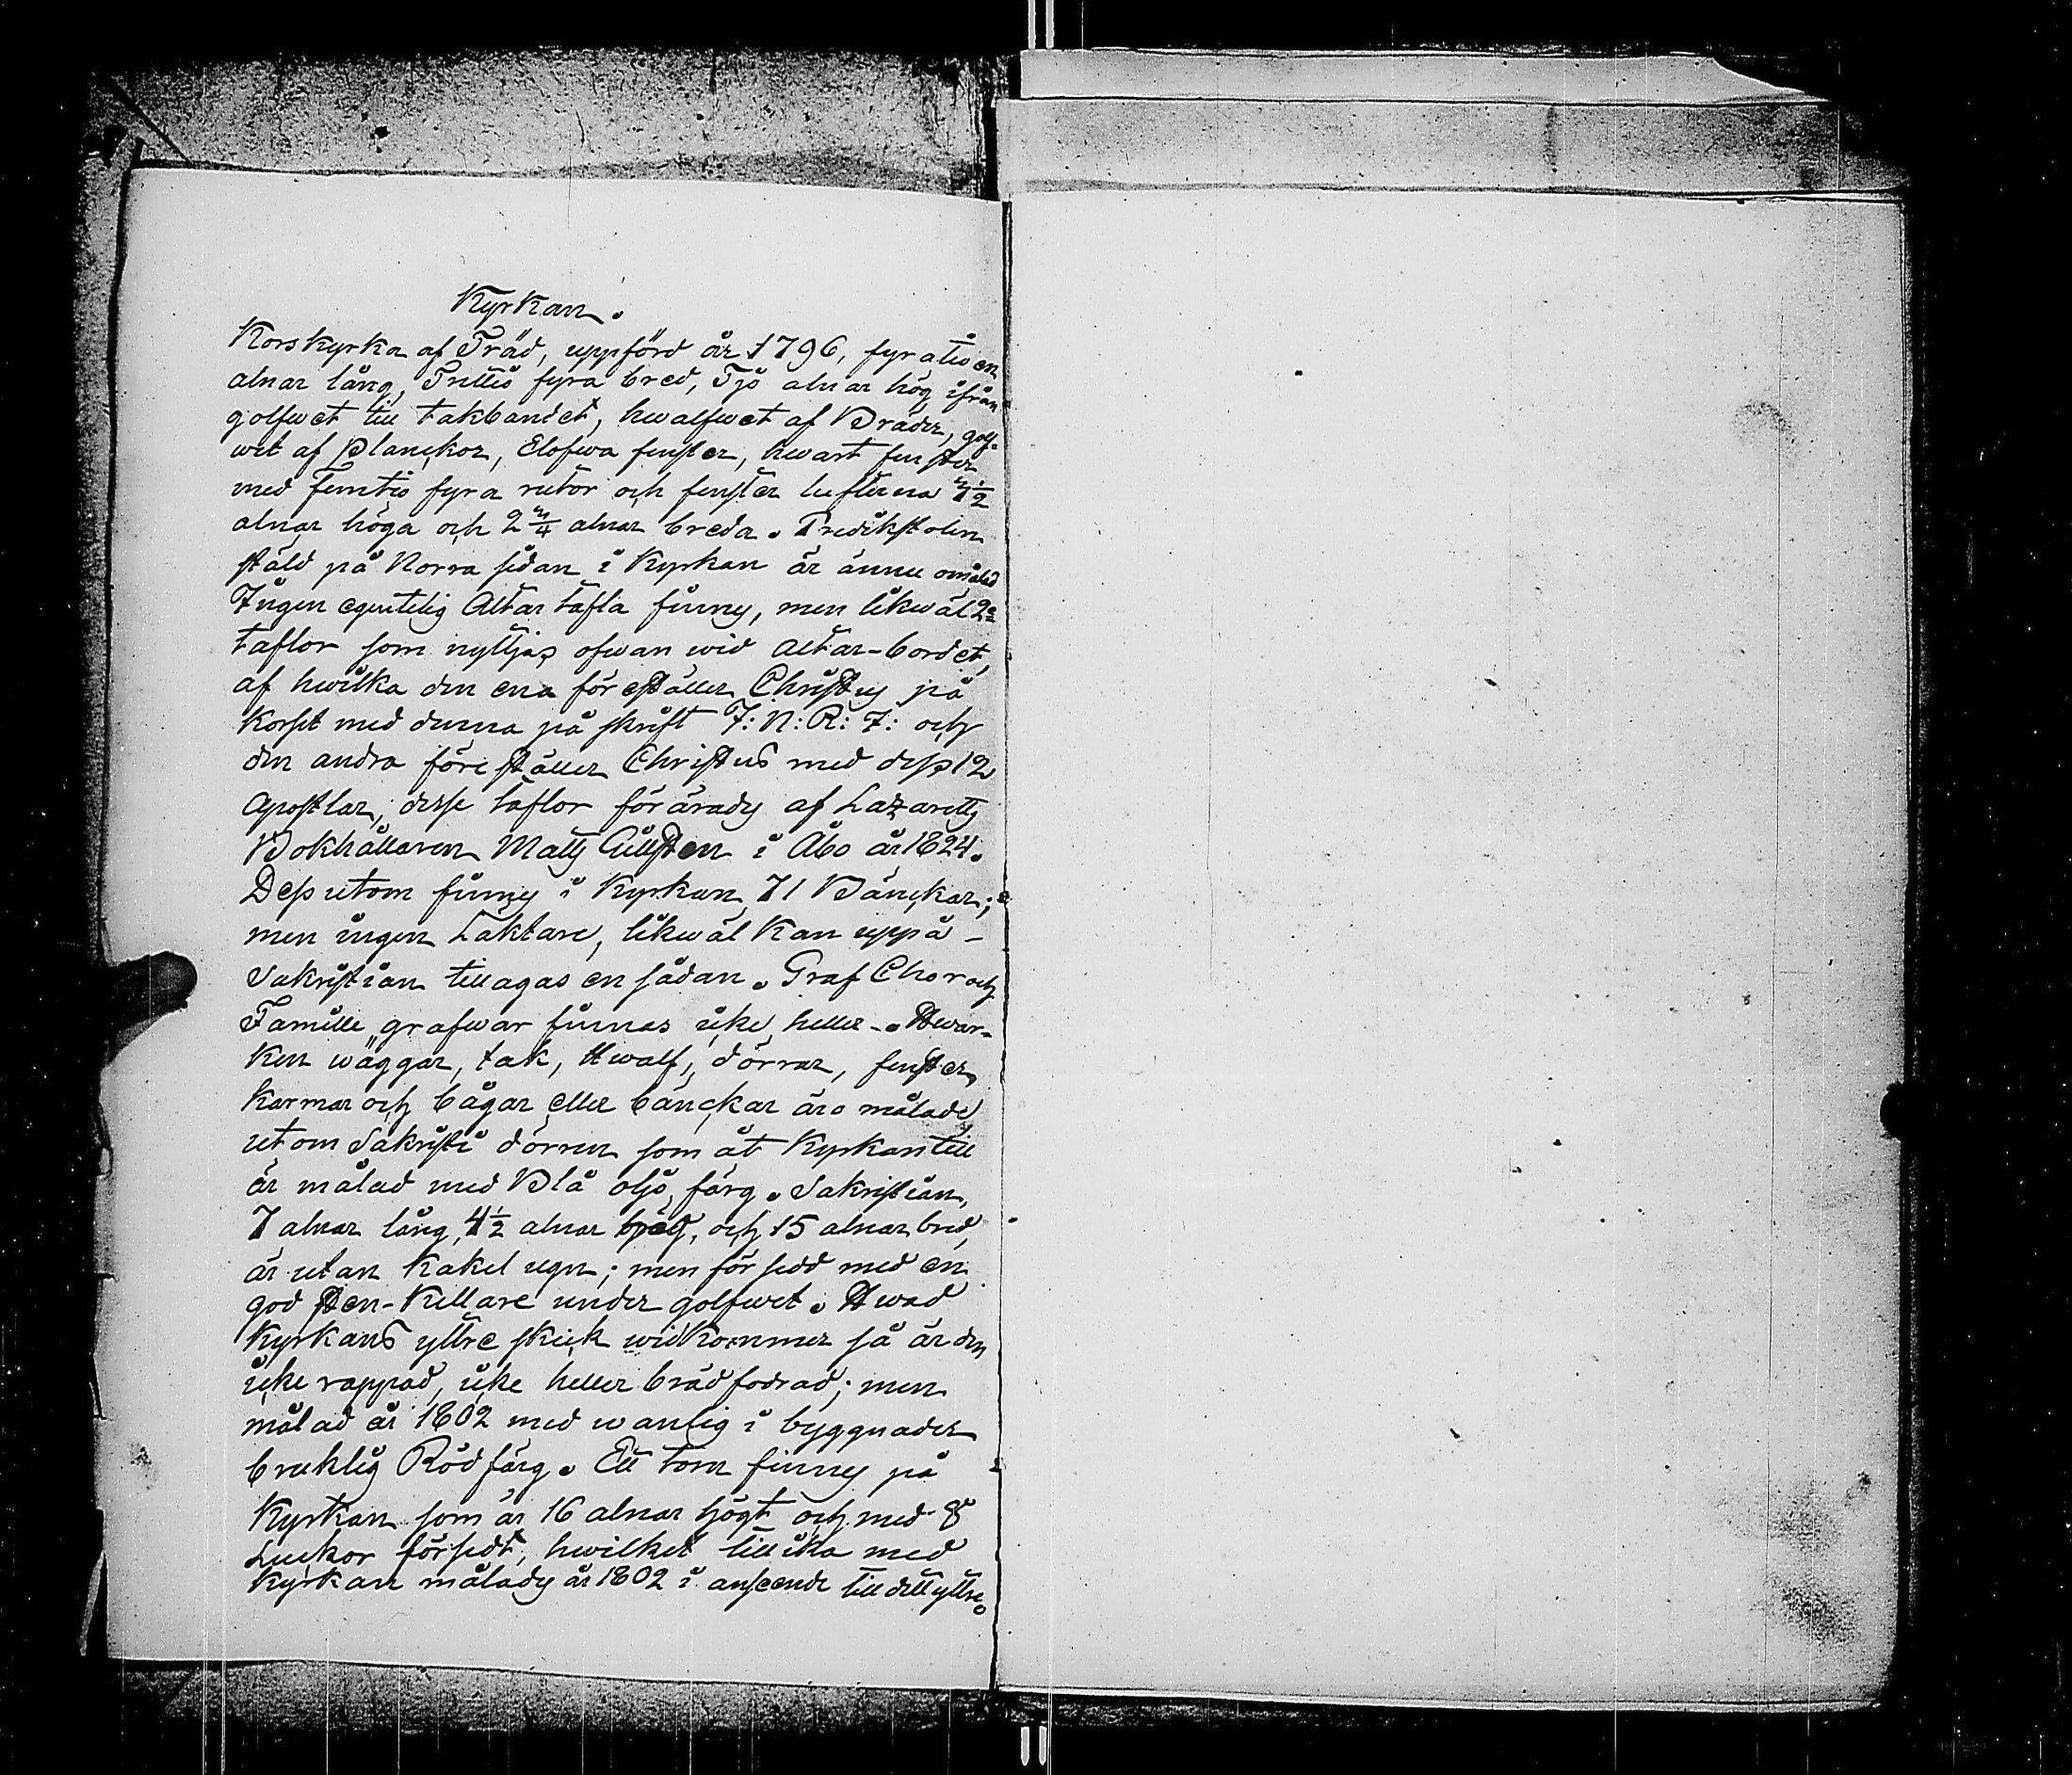 Kyrkan.
Korskyrka af Träd, uppförd år 1796, fyratio en
alnar lång, Trettio fyra bred, Tjo alnar hög ifrån
golfwet till takbandet, hwalfwet af Bräder, golf-
wet af Planckor, Elofwa fenster, hwart fenster
med Femtio fyra rutor och fenster lufterna
alnar höga och 2 3/4 alnar breda. Predikstolen
stäld på Norra sidan i Kyrkan är ännu omålad
Ingen egentelig Altartafla finnes, men likwäl 2ne
taflor som nyttjas ofwan wid altar-bordet,
af hwilka den ena föreställer Christus på
Korset med denna påskrift I: N: R: I: och
den andra föreställer Christus med dess 12
Apostlar, desse taflor förärades af Lazaretts
Bokhållaren Matts Gillsten i Åbo år 1824.
Dessutom finnes i Kyrkan 71 Bänckar;
men ingen Läktare, likwäl Kan uppå -
Sakristian tillagas en sådan. Graf Chor och
Famille grafwar finnas icke heller -. Hwar-
ken wäggar, tak, Hwalf, dörrar, fenster
karmar och bågar eller bänckar äro målade,
utom Sakristi dörren som åt Kyrkan till
är målad med Blå oljo färg. Sakristian,
7 alnar lång, 4 1/2 alnar hög, och 15 alnar bred,
är utan Kakel ugn; men försedd med en
god Sten-Kellare under golfwet. Hwad
Kyrkans yttre skick widkommer så är den
icke rappad, icke heller brädfodrad; men
målad år 1802 med wanlig i byggnader
bruklig Rödfärg. Ett torn finnes på
Kyrkan som är 16 alnar högt och med 8
Luckor försedt, hwilket tillika med
Kyrkan målades år 1802 i anseende till dett yttre.